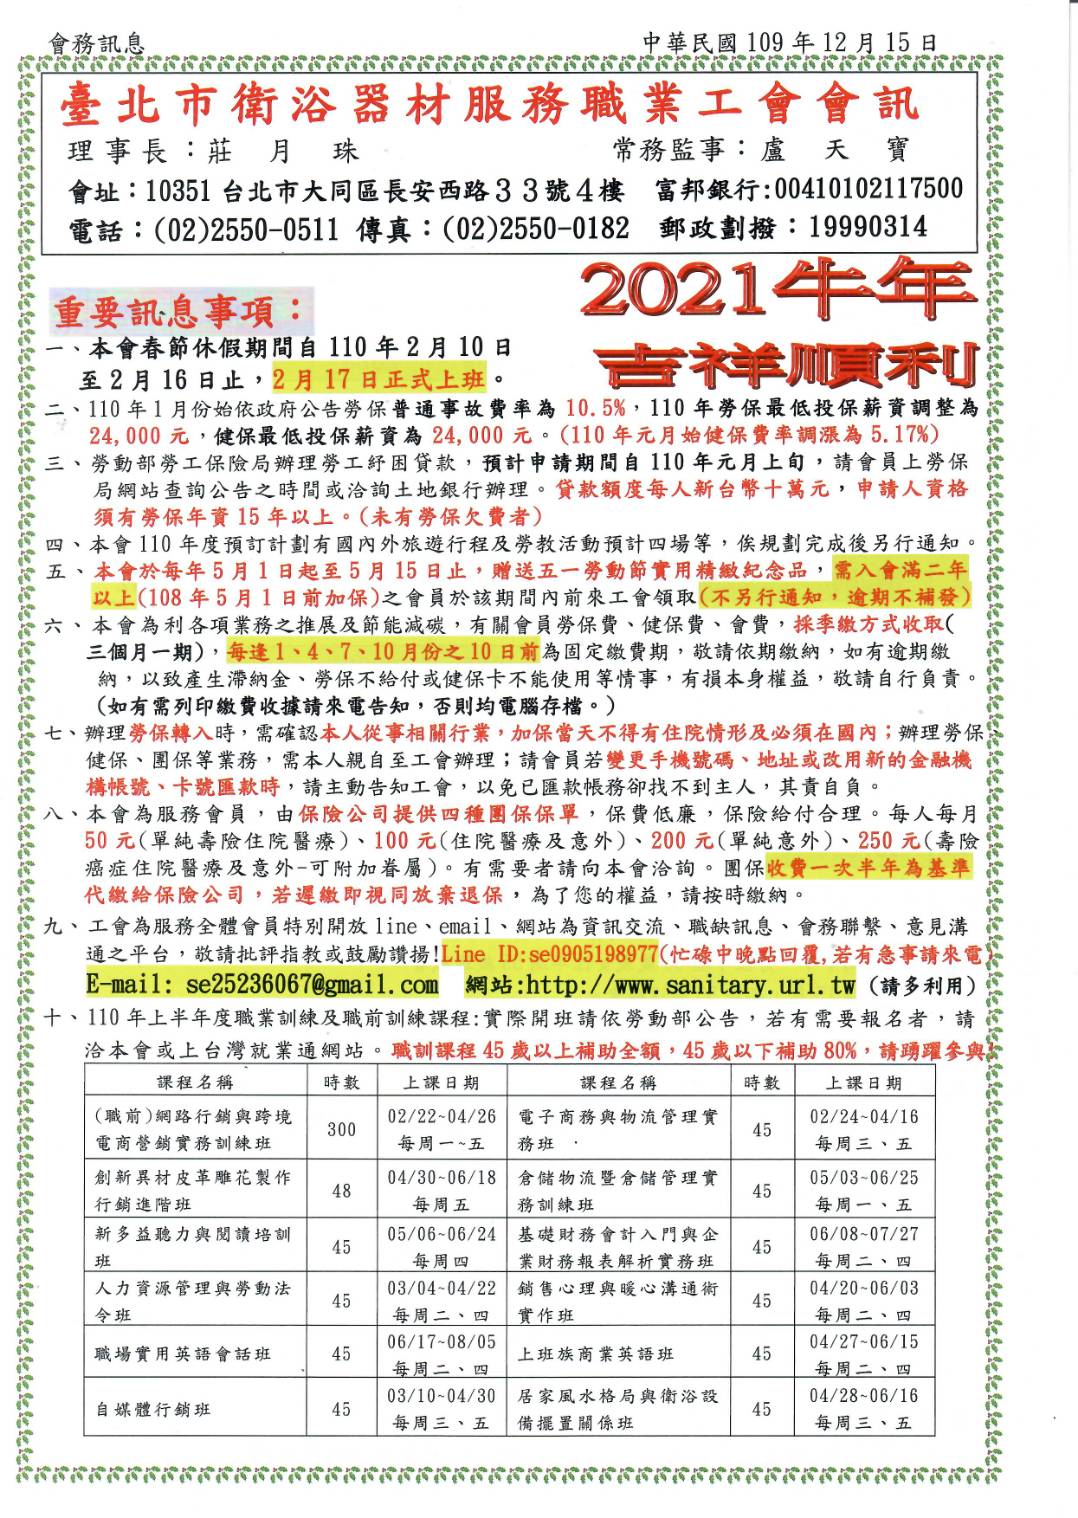 會務訊息 中華民國 109 年 12 月 15 日
臺北市衛浴器材服務職業工會會訊
理事長：莊 月 珠 常務監事：盧 天 寶
會址：10351 台北市大同區長安西路３３號４樓 富邦銀行:00410102117500
電話：(02)2550-0511 傳真：(02)2550-0182 郵政劃撥：19990314
2021牛年
吉祥順利
重要訊息事項：
一、本會春節休假期間自 110 年 2 月 10 日
至 2 月 16 日止，2 月 17 日正式上班。
二、110 年 1 月份始依政府公告勞保普通事故費率為 10.5%，110 年勞保最低投保薪資調整為
24,000 元，健保最低投保薪資為 24,000 元。(110 年元月始健保費率調漲為 5.17%)
三、勞動部勞工保險局辦理勞工紓困貸款，預計申請期間自 110 年元月上旬，請會員上勞保
局網站查詢公告之時間或洽詢土地銀行辦理。貸款額度每人新台幣十萬元，申請人資格
須有勞保年資 15 年以上。(未有勞保欠費者)
四、本會 110 年度預訂計劃有國內外旅遊行程及勞教活動預計四場等，俟規劃完成後另行通知。
五、本會於每年 5 月 1 日起至 5 月 15 日止，贈送五一勞動節實用精緻紀念品，需入會滿二年
以上(108 年 5 月 1 日前加保)之會員於該期間內前來工會領取(不另行通知，逾期不補發)
六、本會為利各項業務之推展及節能減碳，有關會員勞保費、健保費、會費，採季繳方式收取(
三個月一期)，每逢 1、4、7、10 月份之 10 日前為固定繳費期，敬請依期繳納，如有逾期繳
納，以致產生滯納金、勞保不給付或健保卡不能使用等情事，有損本身權益，敬請自行負責。
(如有需列印繳費收據請來電告知，否則均電腦存檔。)
七、辦理勞保轉入時，需確認本人從事相關行業，加保當天不得有住院情形及必須在國內；辦理勞保、
健保、團保等業務，需本人親自至工會辦理；請會員若變更手機號碼、地址或改用新的金融機
構帳號、卡號匯款時，請主動告知工會，以免已匯款帳務卻找不到主人，其責自負。
八、本會為服務會員，由保險公司提供四種團保保單，保費低廉，保險給付合理。每人每月
50 元(單純壽險住院醫療)、100 元(住院醫療及意外)、200 元(單純意外)、250 元(壽險
癌症住院醫療及意外-可附加眷屬)。有需要者請向本會洽詢。團保收費一次半年為基準
代繳給保險公司，若遲繳即視同放棄退保，為了您的權益，請按時繳納。
九、工會為服務全體會員特別開放 line、email、網站為資訊交流、職缺訊息、會務聯繫、意見溝
通之平台，敬請批評指教或鼓勵讚揚!Line ID:se0905198977(忙碌中晚點回覆,若有急事請來電)
E-mail: se25236067@gmail.com 網站:http://www.sanitary.url.tw (請多利用)
十、110 年上半年度職業訓練及職前訓練課程:實際開班請依勞動部公告，若有需要報名者，請
洽本會或上台灣就業通網站。職訓課程 45 歲以上補助全額，45 歲以下補助 80%，請踴躍參與!
課程名稱 時數 上課日期 課程名稱 時數 上課日期
(職前)網路行銷與跨境 300 02/22~04/26 電子商務與物流管理實 45 02/24~04/16
電商營銷實務訓練班 每周一~五 務班 每周三、五
創新異材皮革雕花製作 48 04/30~06/18 倉儲物流暨倉儲管理實 45 05/03~06/25
行銷進階班 每周五 務訓練班 每周一、五
新多益聽力與閱讀培訓 45 05/06~06/24 基礎財務會計入門與企 45 06/08~07/27
班 每周四 業財務報表解析實務班 每周二、四
人力資源管理與勞動法 45 03/04~04/22 銷售心理與暖心溝通術 45 04/20~06/03
令班 每周二、四 實作班 每周二、四
職場實用英語會話班 45 06/17~08/05 上班族商業英語班 45 04/27~06/15
每周二、四 每周二、四
自媒體行銷班 45 03/10~04/30 居家風水格局與衛浴設 45 04/28~06/16
每周三、五 備擺置關係班 每周三、五